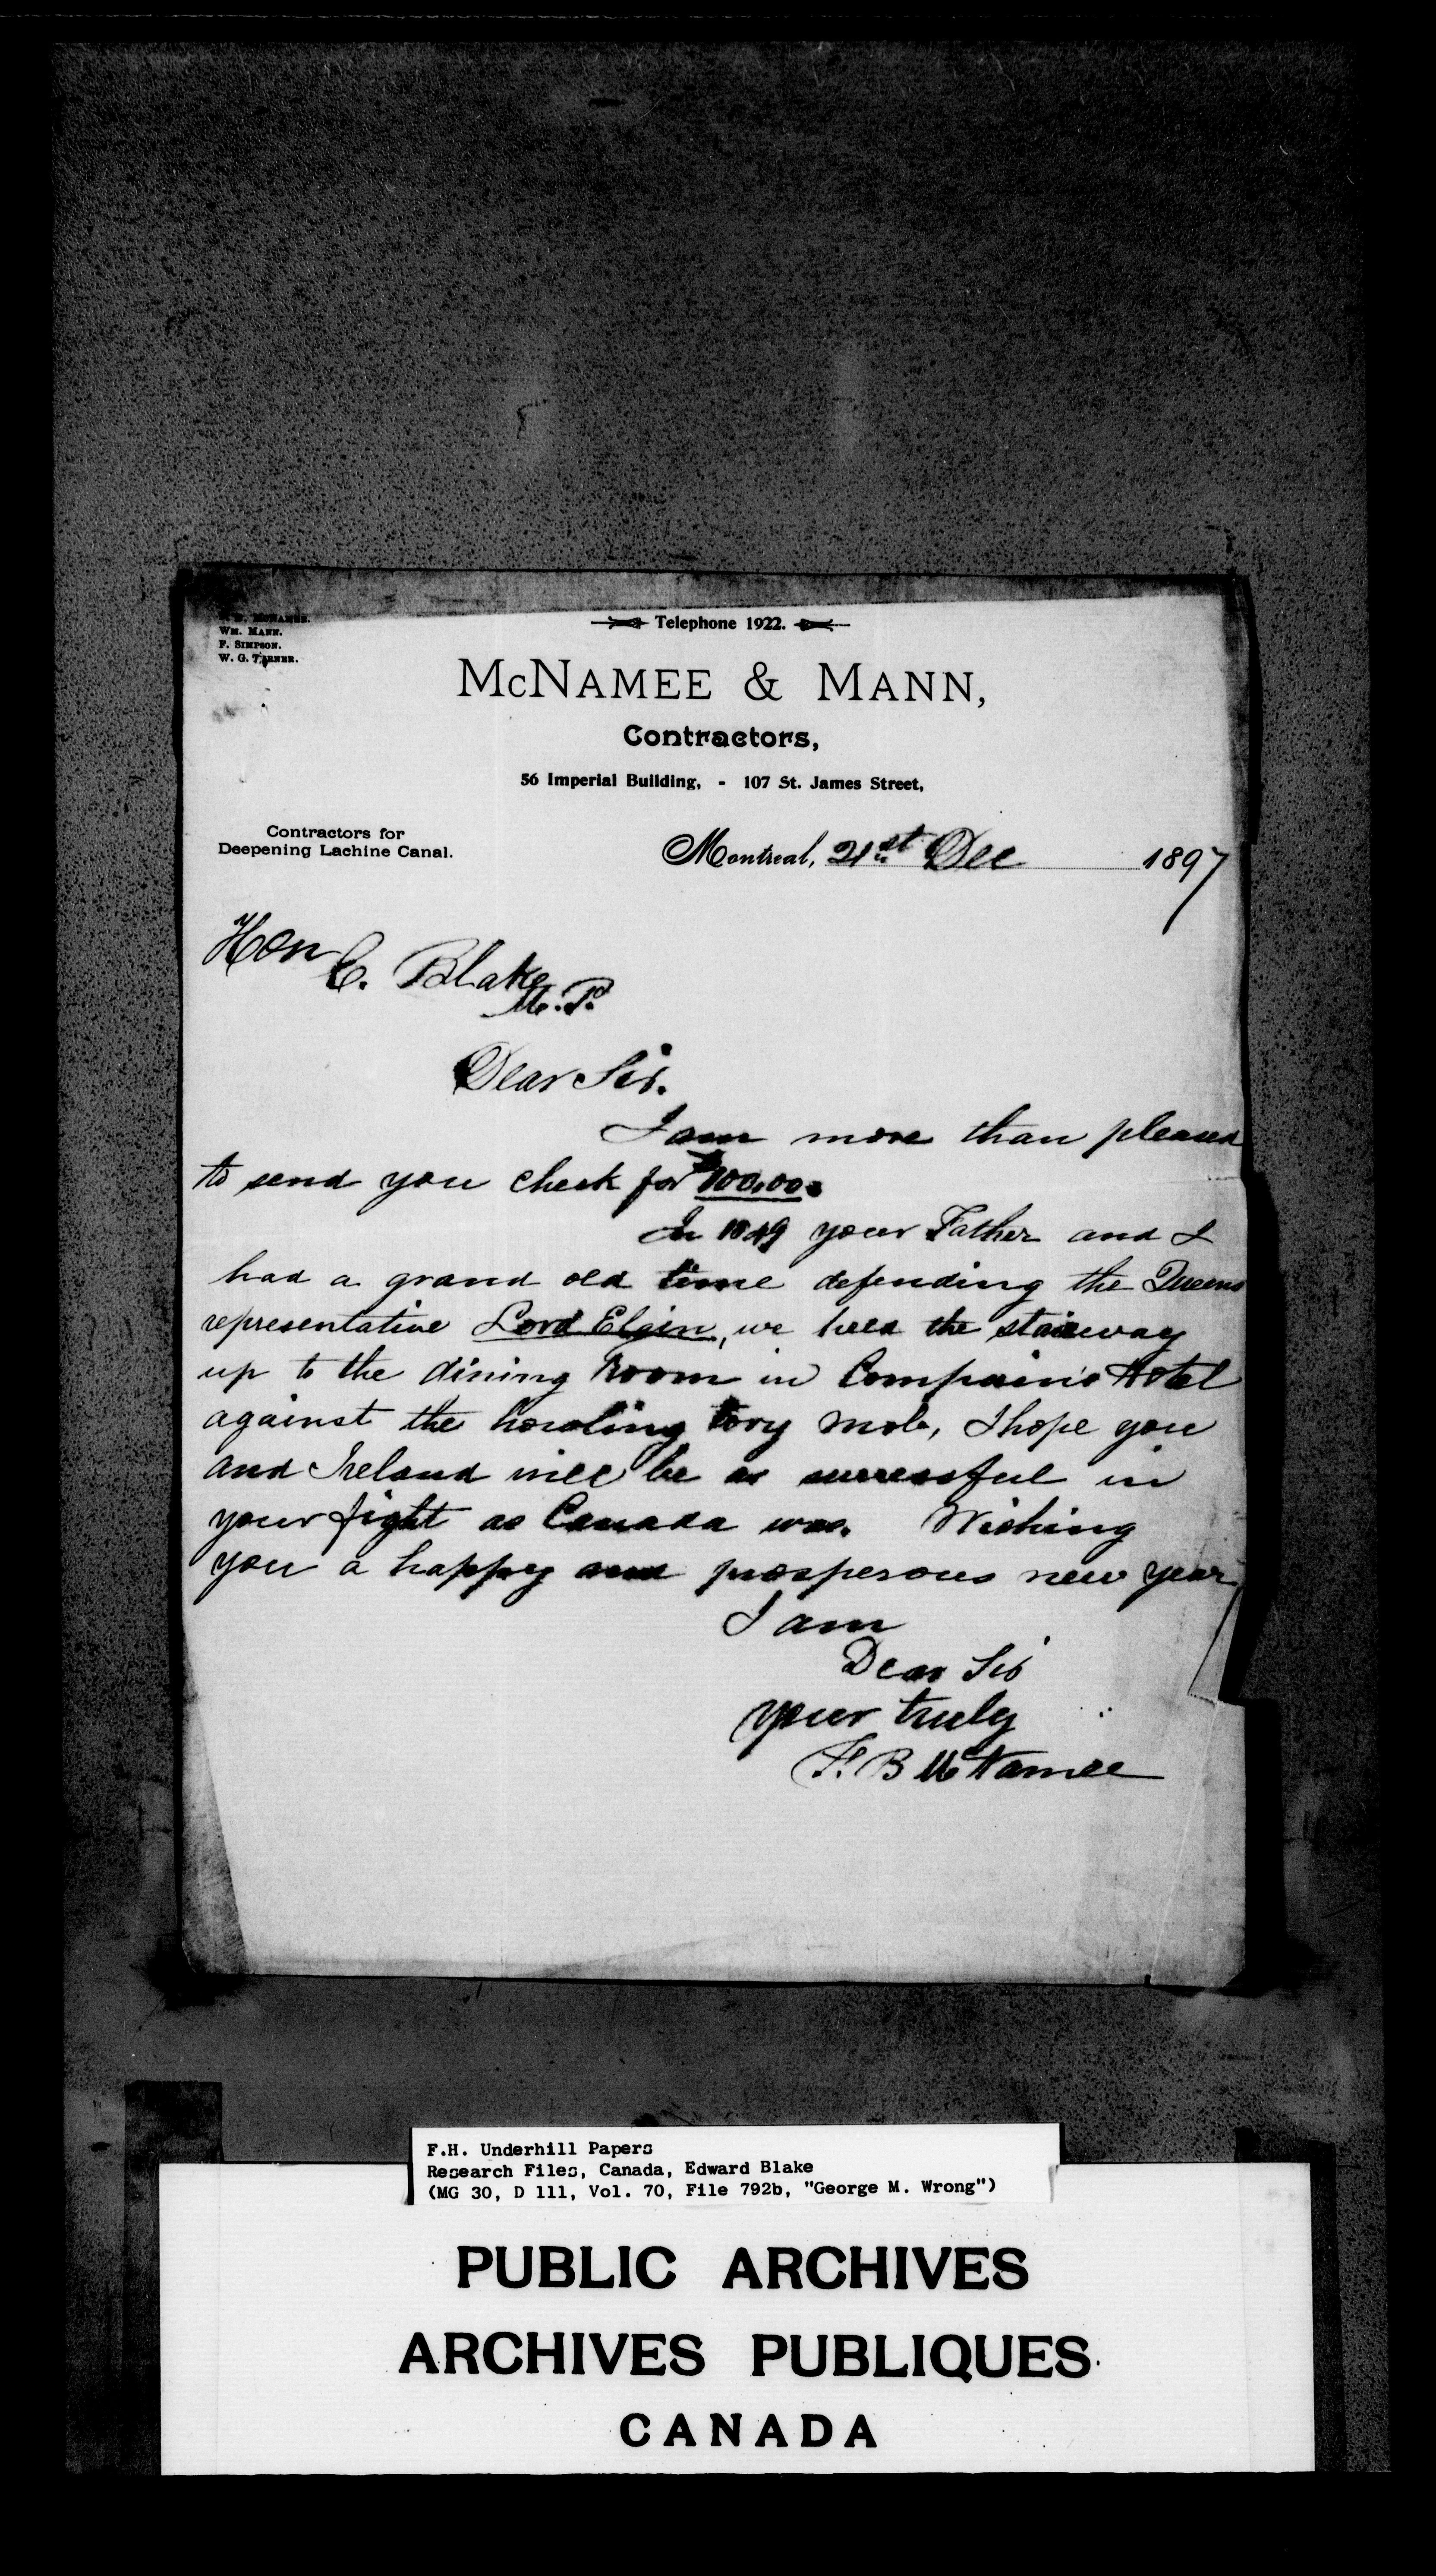 F. B. McNamee.
Wm. Mann.
F. Simpson.
W. G. Turner.
Telephone 1922.
McNamee & Mann,
Contractors,
56 Imperial Building, - 107 St. James Street,
Contractors for
Deepening Lachine Canal.
Montreal, 21st Dec 1897
Hon
E. Blake
M.P.
Dear Sir.
I am more than pleased
to send you check for $100.00.
In 1849 your Father and I
had a grand old time defending the Queens
representative Lord Elgin, we held the stairway
up to the dining Room in Compain's Hotel
against the howling tory mob, I hope you
and Ireland will be as successful in
your fight as Canada was. Wishing
you a happy and prosperous new year
I am
Dear Sir
your truly
F. B McNamee
F.H. Underhill Papers
Research Files, Canada, Edward Blake
(MG 30, D 111, Vol. 70, File 792b, "George M. Wrong")
PUBLIC ARCHIVES
ARCHIVES PUBLIQUES
CANADA